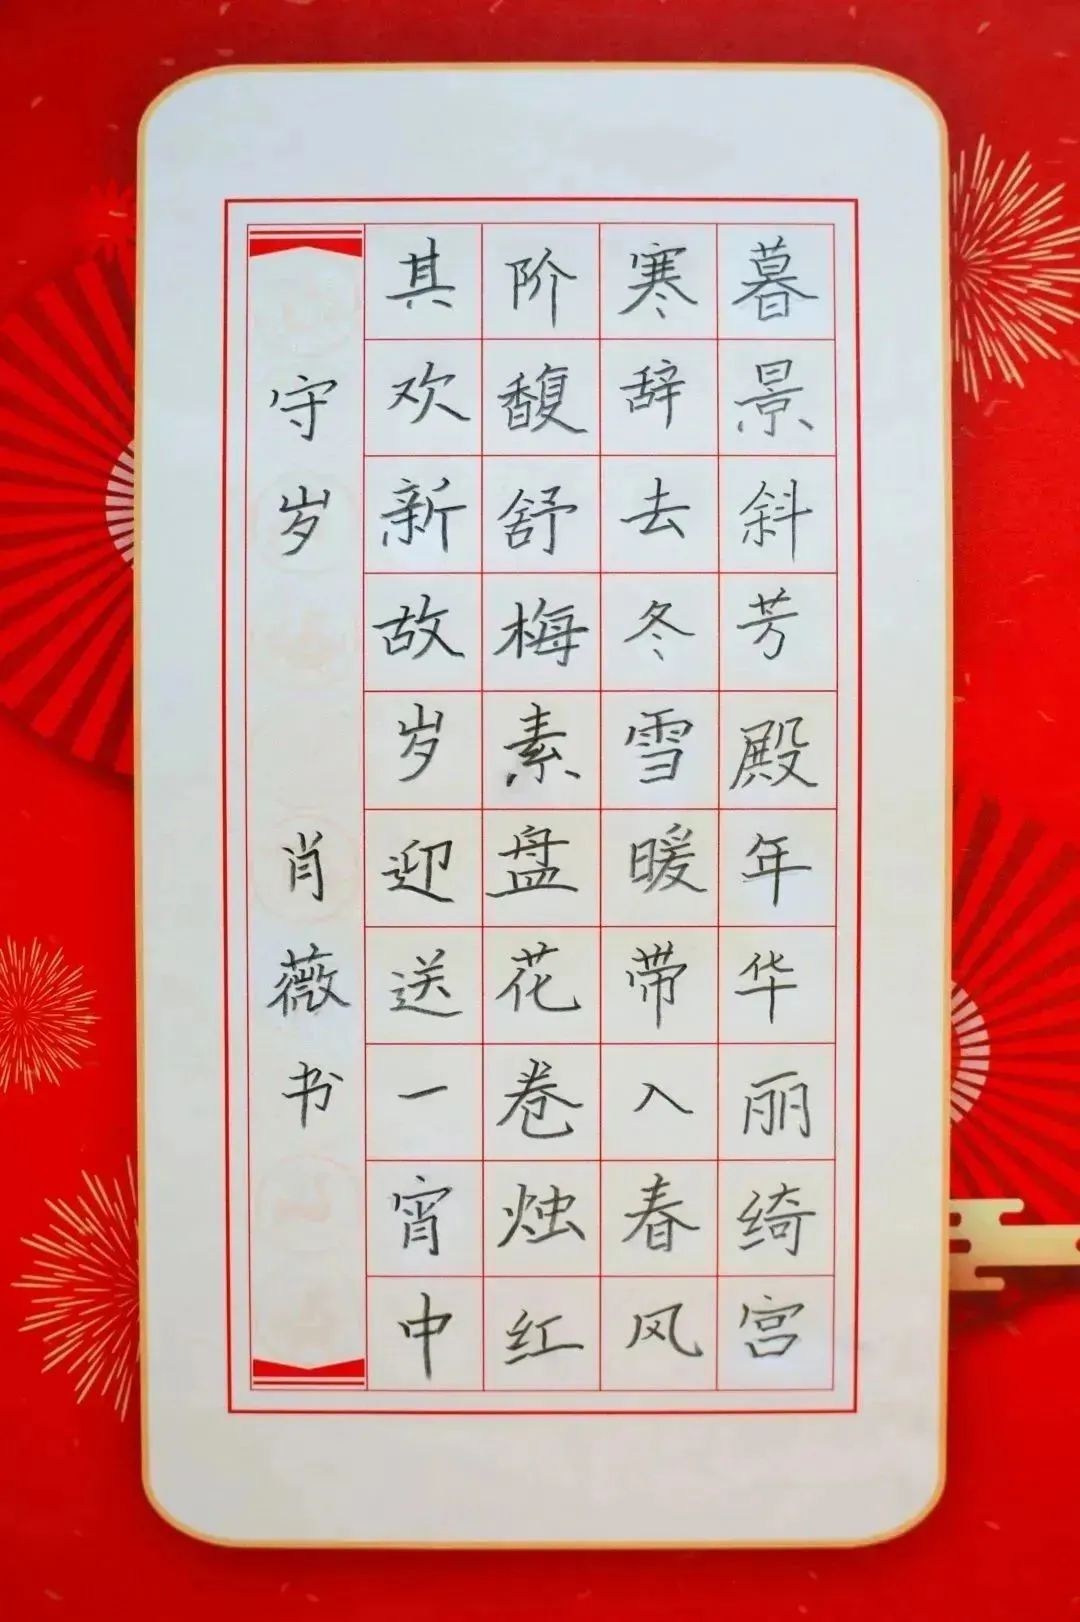 暮景斜芳殿年华丽绮宫
寒辞去冬雪暖带入春风
阶馥舒梅素盘花卷烛红
其欢新故岁迎送一宵中
守岁 肖薇书